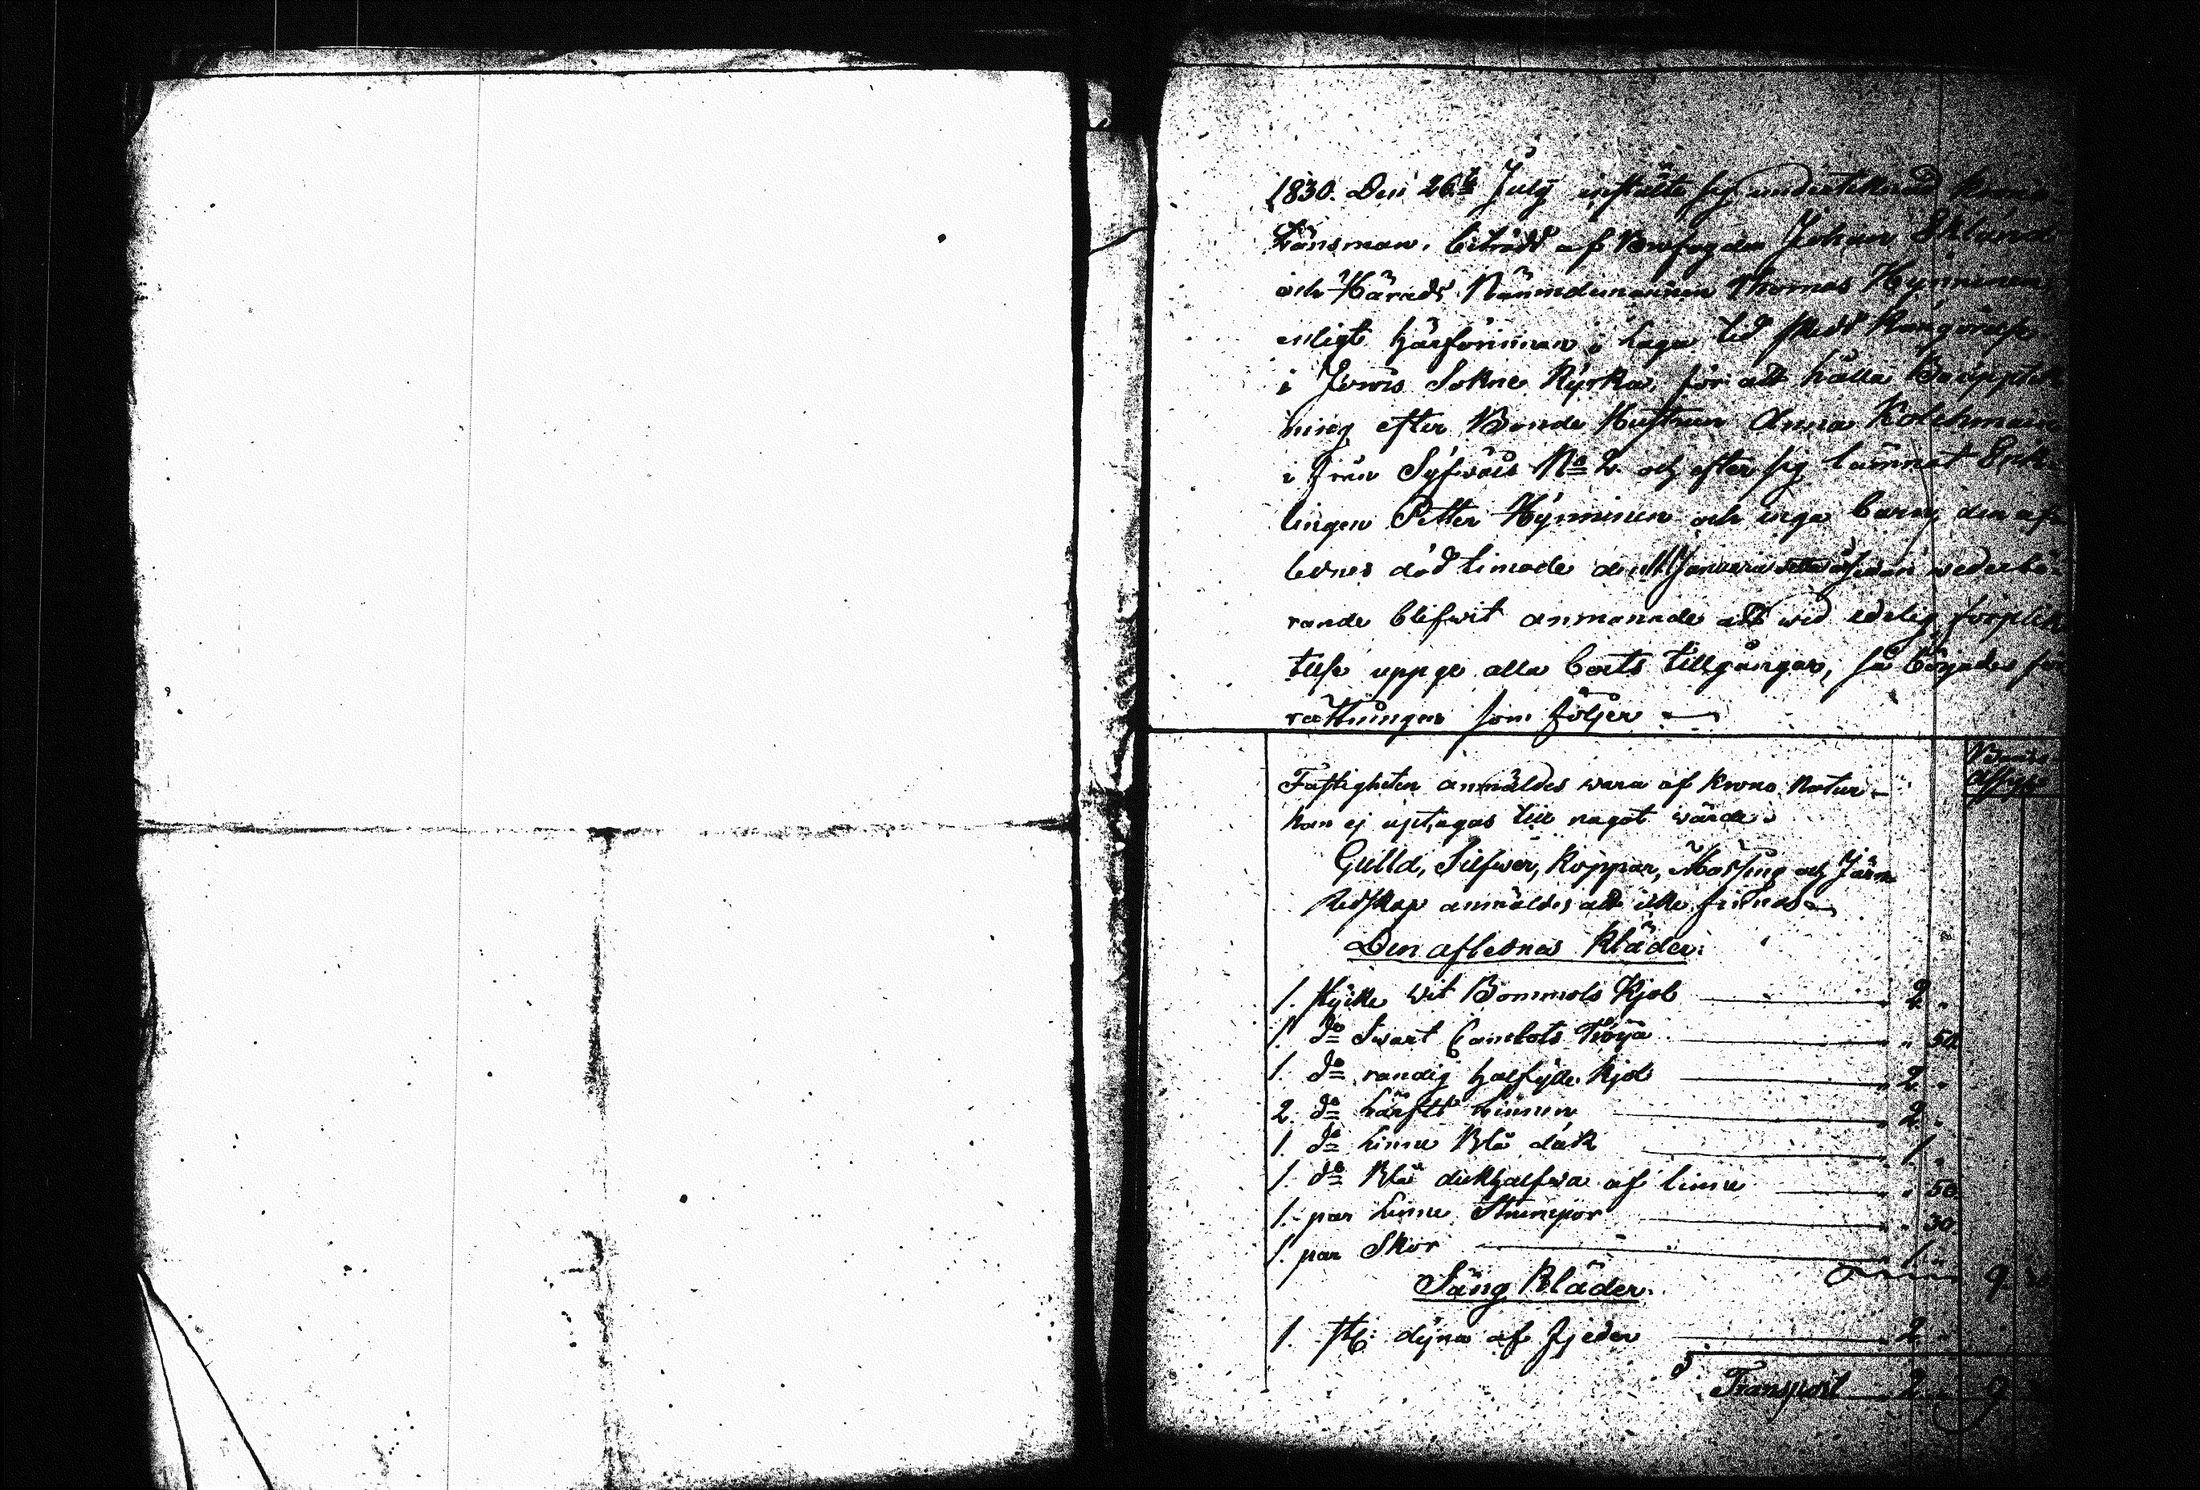 1830. Den 26te July instälte sig undertecknad Krono
Länsman, biträdd af Brofogden Johan Eklund
och Härads Nämndemannen Thomas Hynninen
enligt härförinnan i laga tid skedd Kungörelse
i Jorois Sokne Kyrka, för att hålla Bouppteck
ning efter Bonde Hustrun Anna Kolehmain
ifrån No 2 och efter sig lämnat Enk-
lingen Petter Hynninen och inga barn, den af-
lednes död timade den Januari sedan wederbö-
rande blifwit anmanade att wid edelig förplik
telse uppge alla boets tillgångar, så börjades för
rättningen som följer
Fastigheten anmäldes wara af Krono Natur
kan ej uptagas till något wärde.
Banco
Assign
Gulld, Silfwer, Koppar, Mässing och Järn
Redskap anmäldes att icke finnas
Den aflednes Kläder.
1. stycke wit Bommols Kjol 2. "
1. do Swart Camlots Tröija " 50.
1. do randig halfylle Kjol 2. "
2. do Linnen 2. "
1. do Linne Blå duk 1. "
1. do Blå dukhalfwa af linne " 50.
1. par Linne Strumpor " 30.
1. par Skor 1. "
Säng Kläder. 9
1. st: dyna af fjeder 2. "
Transport 2. " 9